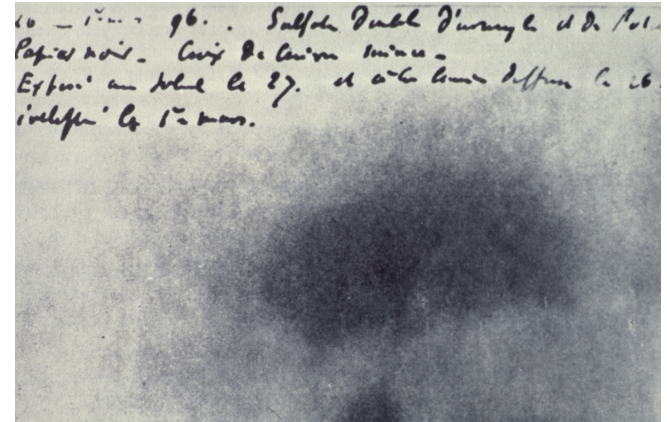 96. Sulfate double d'uranyle et de
Papier noir. Croix de cuivre mince.
Exposé au soleil le 27. et à la lumière diffuse le 26.
le 1er mars.